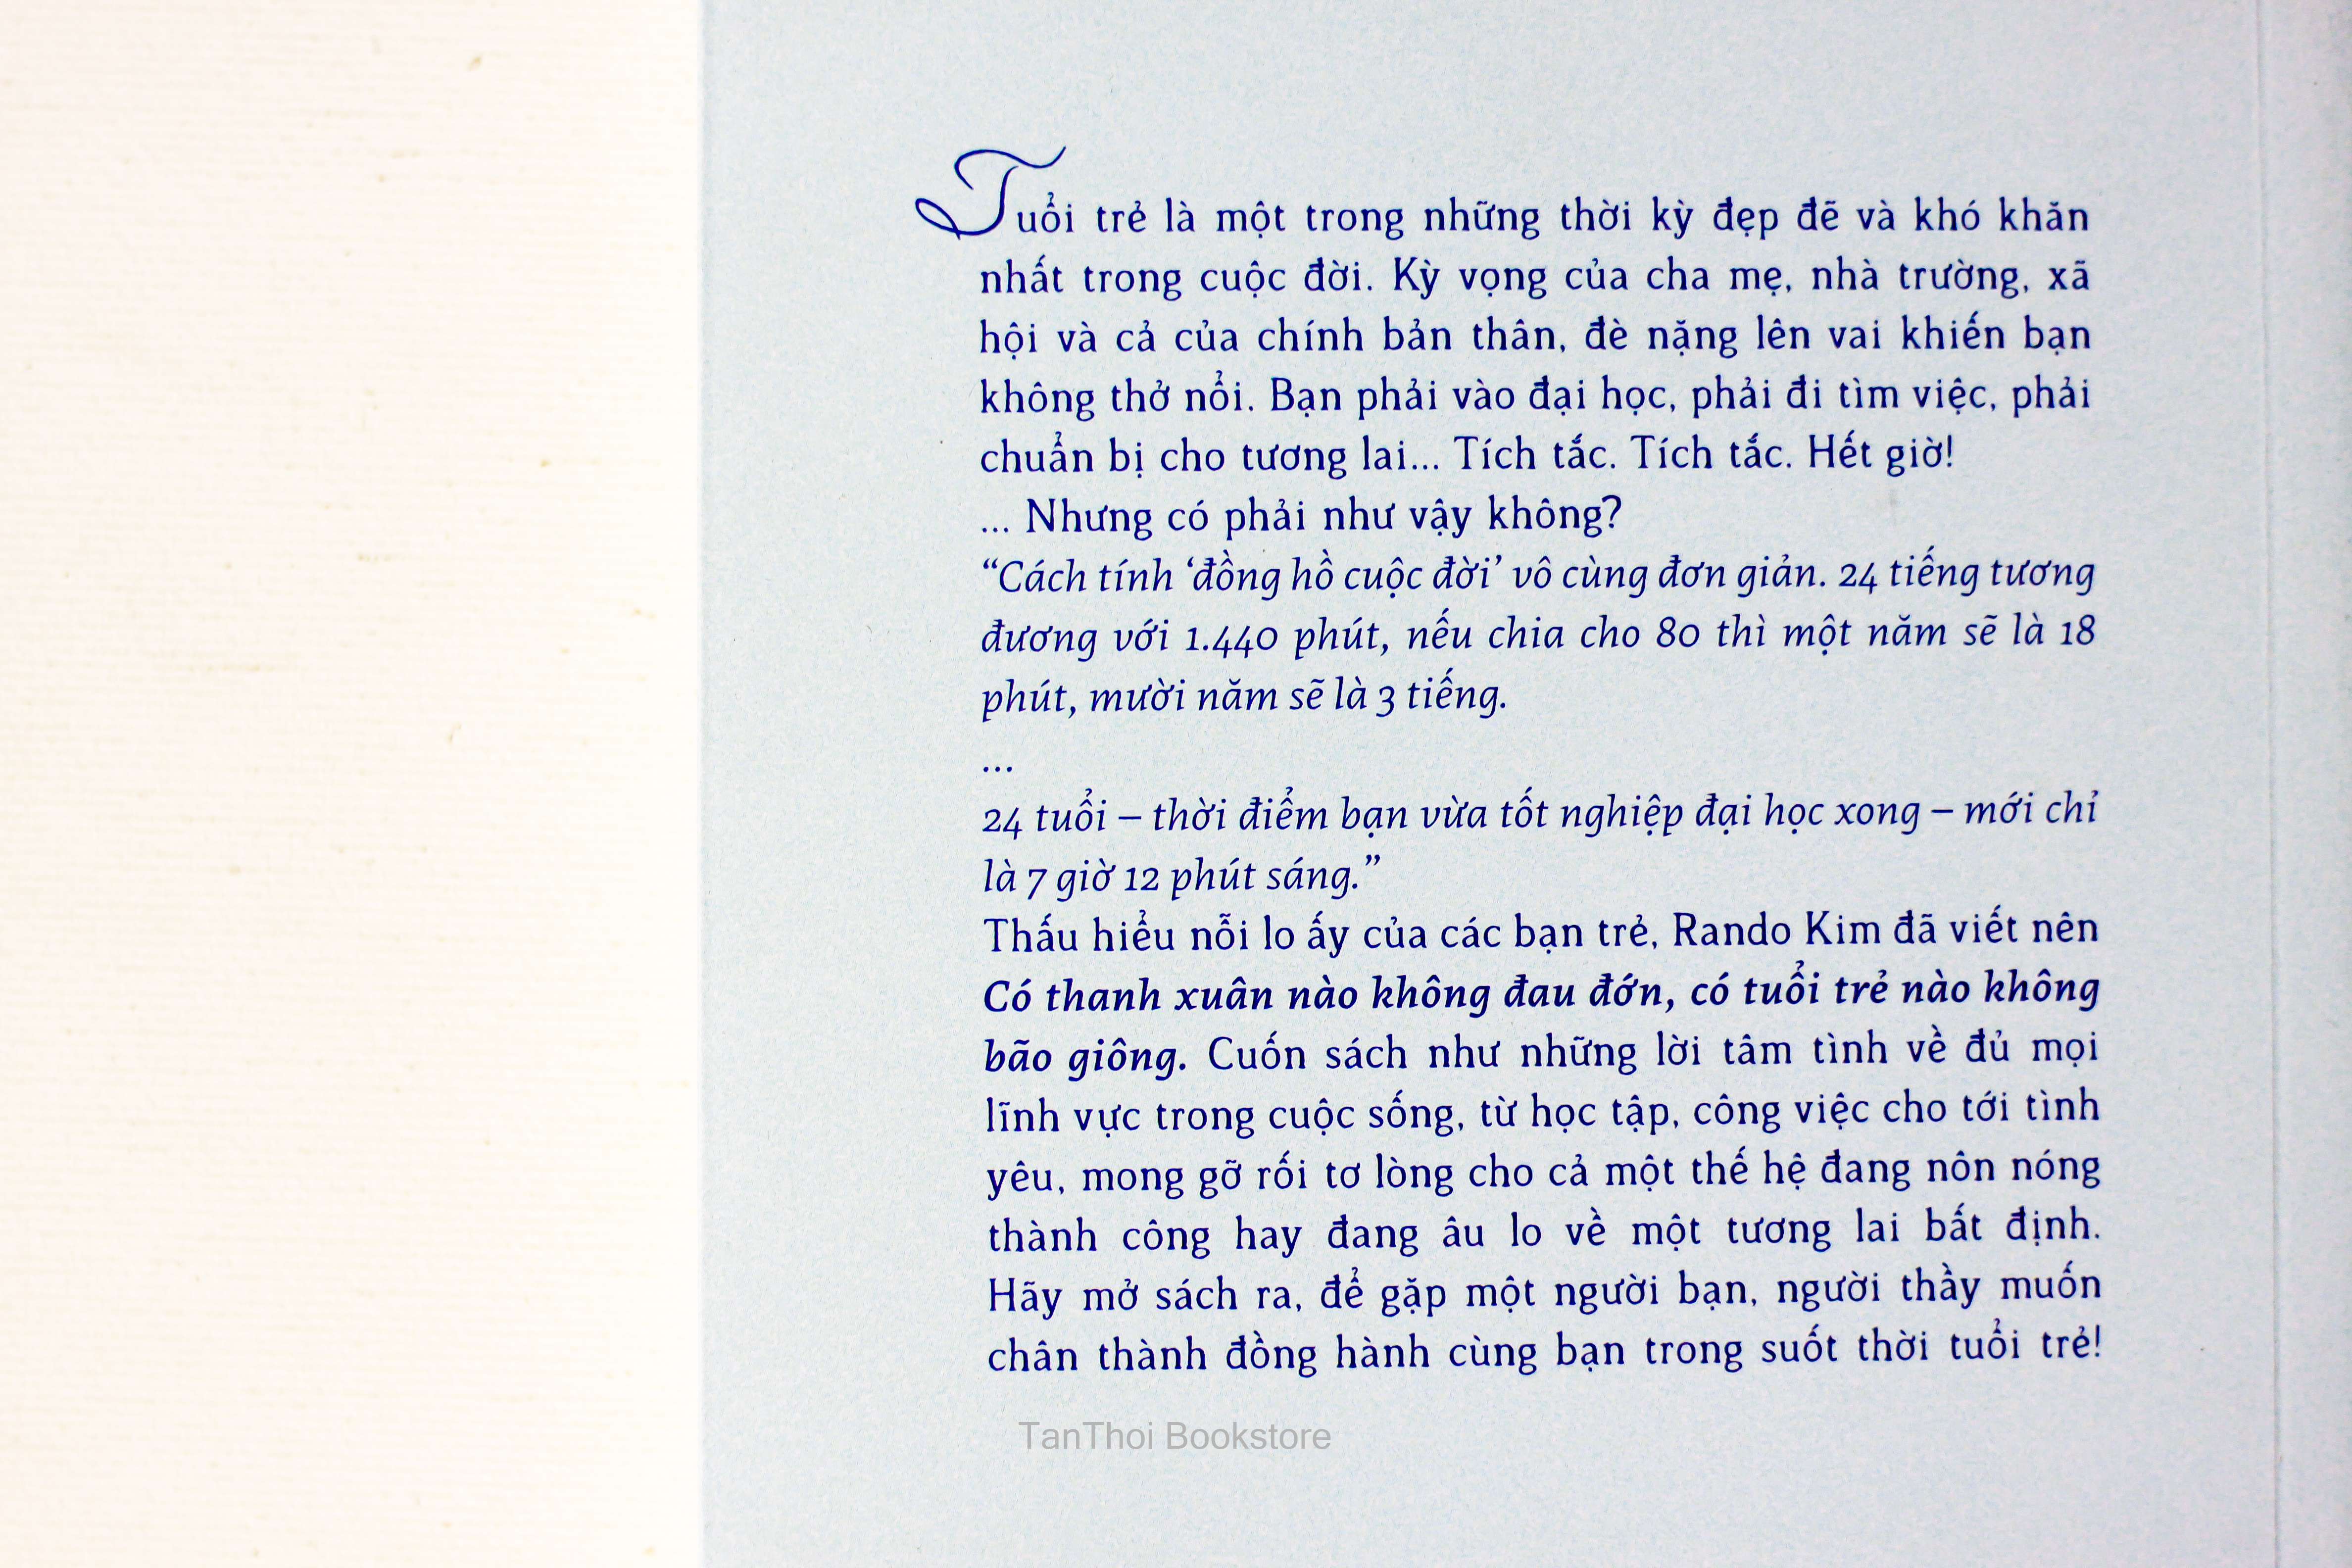 Tuổi trẻ là một trong những thời kỳ đẹp đẽ và khó khăn
nhất trong cuộc đời. Kỳ vọng của cha mẹ, nhà trường, xã
hội và cả của chính bản thân, đè nặng lên vai khiến bạn
không thở nổi. Bạn phải vào đại học, phải đi tìm việc, phải
chuẩn bị cho tương lai... Tích tắc. Tích tắc. Hết giờ!
... Nhưng có phải như vậy không?
“Cách tính ‘đồng hồ cuộc đời’ vô cùng đơn giản. 24 tiếng tương
đương với 1.440 phút, nếu chia cho 80 thì một năm sẽ là 18
phút, mười năm sẽ là 3 tiếng.
...
24 tuổi – thời điểm bạn vừa tốt nghiệp đại học xong – mới chỉ
là 7 giờ 12 phút sáng.”
Thấu hiểu nỗi lo ấy của các bạn trẻ, Rando Kim đã viết nên
Có thanh xuân nào không đau đớn, có tuổi trẻ nào không
bão giông. Cuốn sách như những lời tâm tình về đủ mọi
lĩnh vực trong cuộc sống, từ học tập, công việc cho tới tình
yêu, mong gỡ rối tơ lòng cho cả một thế hệ đang nôn nóng
thành công hay đang âu lo về một tương lai bất định.
Hãy mở sách ra, để gặp một người bạn, người thầy muốn
chân thành đồng hành cùng bạn trong suốt thời tuổi trẻ!
TanThoi Bookstore